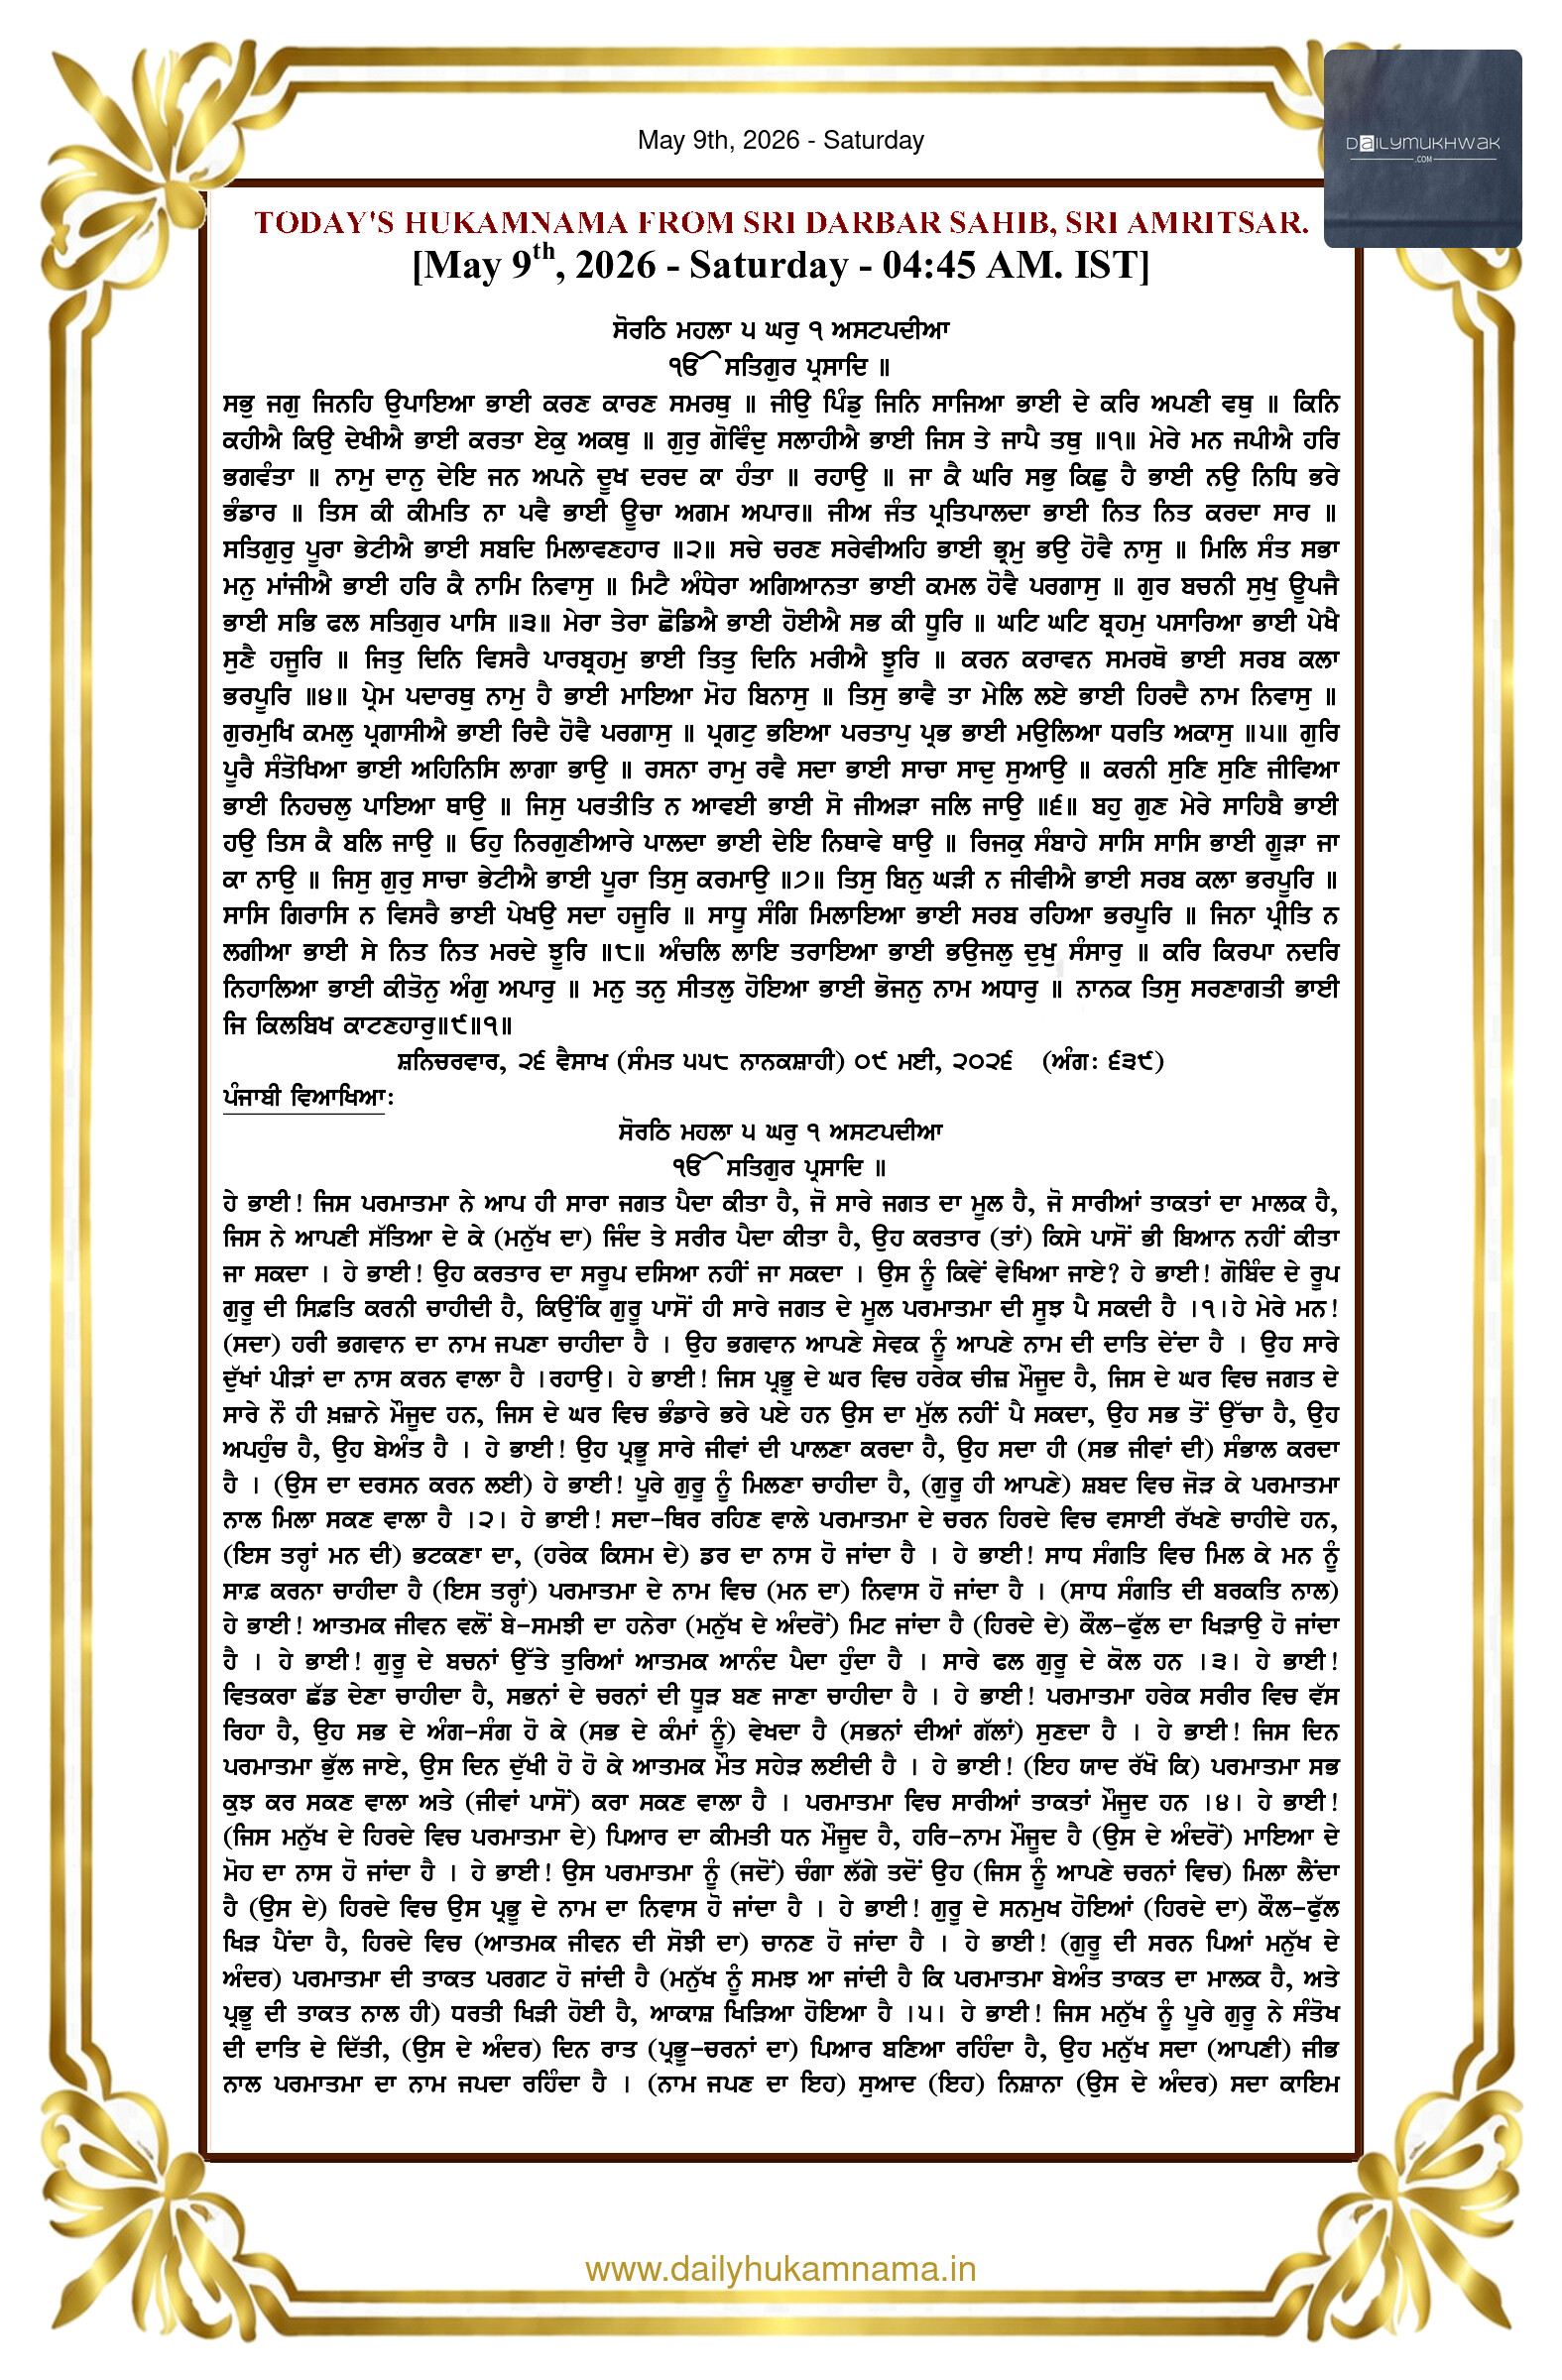 May 9th, 2026 - Saturday
DaILYMUKHWaK
.COM
TODAY'S HUKAMNAMA FROM SRI DARBAR SAHIB, SRI AMRITSAR.
[May 9th, 2026 - Saturday - 04:45 AM. IST]
ਸੋਰਠਿ ਮਹਲਾ ੫ ਘਰੁ ੧ ਅਸਟਪਦੀਆ
ੴ ਸਤਿਗੁਰ ਪ੍ਰਸਾਦਿ ॥
ਸਭੁ ਜਗੁ ਜਿਨਹਿ ਉਪਾਇਆ ਭਾਈ ਕਰਣ ਕਾਰਣ ਸਮਰਥੁ ॥ ਜੀਉ ਪਿੰਡੁ ਜਿਨਿ ਸਾਜਿਆ ਭਾਈ ਦੇ ਕਰਿ ਅਪਣੀ ਵਥੁ ॥ ਕਿਨਿ
ਕਹੀਐ ਕਿਉ ਦੇਖੀਐ ਭਾਈ ਕਰਤਾ ਏਕੁ ਅਕਥੁ ॥ ਗੁਰੁ ਗੋਵਿੰਦੁ ਸਲਾਹੀਐ ਭਾਈ ਜਿਸ ਤੇ ਜਾਪੈ ਤਥੁ ॥੧॥ ਮੇਰੇ ਮਨ ਜਪੀਐ ਹਰਿ
ਭਗਵੰਤਾ ॥ ਨਾਮੁ ਦਾਨੁ ਦੇਇ ਜਨ ਅਪਨੇ ਦੂਖ ਦਰਦ ਕਾ ਹੰਤਾ ॥ ਰਹਾਉ ॥ ਜਾ ਕੈ ਘਰਿ ਸਭੁ ਕਿਛੁ ਹੈ ਭਾਈ ਨਉ ਨਿਧਿ ਭਰੇ
ਭੰਡਾਰ ॥ ਤਿਸ ਕੀ ਕੀਮਤਿ ਨਾ ਪਵੈ ਭਾਈ ਊਚਾ ਅਗਮ ਅਪਾਰ॥ ਜੀਅ ਜੰਤ ਪ੍ਰਤਿਪਾਲਦਾ ਭਾਈ ਨਿਤ ਨਿਤ ਕਰਦਾ ਸਾਰ ॥
ਸਤਿਗੁਰੁ ਪੂਰਾ ਭੇਟੀਐ ਭਾਈ ਸਬਦਿ ਮਿਲਾਵਣਹਾਰ ॥੨॥ ਸਚੇ ਚਰਣ ਸਰੇਵੀਅਹਿ ਭਾਈ ਭ੍ਰਮੁ ਭਉ ਹੋਵੈ ਨਾਸੁ ॥ ਮਿਲਿ ਸੰਤ ਸਭਾ
ਮਨੁ ਮਾਂਜੀਐ ਭਾਈ ਹਰਿ ਕੈ ਨਾਮਿ ਨਿਵਾਸੁ ॥ ਮਿਟੈ ਅੰਧੇਰਾ ਅਗਿਆਨਤਾ ਭਾਈ ਕਮਲ ਹੋਵੈ ਪਰਗਾਸੁ ॥ ਗੁਰ ਬਚਨੀ ਸੁਖੁ ਊਪਜੈ
ਭਾਈ ਸਭਿ ਫਲ ਸਤਿਗੁਰ ਪਾਸਿ ॥੩॥ ਮੇਰਾ ਤੇਰਾ ਛੋਡਿਐ ਭਾਈ ਹੋਈਐ ਸਭ ਕੀ ਧੂਰਿ ॥ ਘਟਿ ਘਟਿ ਬ੍ਰਹਮੁ ਪਸਾਰਿਆ ਭਾਈ ਪੇਖੈ
ਸੁਣੈ ਹਜੂਰਿ ॥ ਜਿਤੁ ਦਿਨਿ ਵਿਸਰੈ ਪਾਰਬ੍ਰਹਮੁ ਭਾਈ ਤਿਤੁ ਦਿਨਿ ਮਰੀਐ ਝੂਰਿ ॥ ਕਰਨ ਕਰਾਵਨ ਸਮਰਥੋ ਭਾਈ ਸਰਬ ਕਲਾ
ਭਰਪੂਰਿ ॥੪॥ ਪ੍ਰੇਮ ਪਦਾਰਥੁ ਨਾਮੁ ਹੈ ਭਾਈ ਮਾਇਆ ਮੋਹ ਬਿਨਾਸੁ ॥ ਤਿਸੁ ਭਾਵੈ ਤਾ ਮੇਲਿ ਲਏ ਭਾਈ ਹਿਰਦੈ ਨਾਮ ਨਿਵਾਸੁ ॥
ਗੁਰਮੁਖਿ ਕਮਲੁ ਪ੍ਰਗਾਸੀਐ ਭਾਈ ਰਿਦੈ ਹੋਵੈ ਪਰਗਾਸੁ ॥ ਪ੍ਰਗਟੁ ਭਇਆ ਪਰਤਾਪੁ ਪ੍ਰਭ ਭਾਈ ਮਉਲਿਆ ਧਰਤਿ ਅਕਾਸੁ ॥੫॥ ਗੁਰਿ
ਪੂਰੈ ਸੰਤੋਖਿਆ ਭਾਈ ਅਹਿਨਿਸਿ ਲਾਗਾ ਭਾਉ ॥ ਰਸਨਾ ਰਾਮੁ ਰਵੈ ਸਦਾ ਭਾਈ ਸਾਚਾ ਸਾਦੁ ਸੁਆਉ ॥ ਕਰਨੀ ਸੁਣਿ ਸੁਣਿ ਜੀਵਿਆ
ਭਾਈ ਨਿਹਚਲੁ ਪਾਇਆ ਥਾਉ ॥ ਜਿਸੁ ਪਰਤੀਤਿ ਨ ਆਵਈ ਭਾਈ ਸੋ ਜੀਅੜਾ ਜਲਿ ਜਾਉ ॥੬॥ ਬਹੁ ਗੁਣ ਮੇਰੇ ਸਾਹਿਬੈ ਭਾਈ
ਹਉ ਤਿਸ ਕੈ ਬਲਿ ਜਾਉ ॥ ਓਹੁ ਨਿਰਗੁਣੀਆਰੇ ਪਾਲਦਾ ਭਾਈ ਦੇਇ ਨਿਥਾਵੇ ਥਾਉ ॥ ਰਿਜਕੁ ਸੰਬਾਹੇ ਸਾਸਿ ਸਾਸਿ ਭਾਈ ਗੂੜਾ ਜਾ
ਕਾ ਨਾਉ ॥ ਜਿਸੁ ਗੁਰੁ ਸਾਚਾ ਭੇਟੀਐ ਭਾਈ ਪੂਰਾ ਤਿਸੁ ਕਰਮਾਉ ॥੭॥ ਤਿਸੁ ਬਿਨੁ ਘੜੀ ਨ ਜੀਵੀਐ ਭਾਈ ਸਰਬ ਕਲਾ ਭਰਪੂਰਿ ॥
ਸਾਸਿ ਗਿਰਾਸਿ ਨ ਵਿਸਰੈ ਭਾਈ ਪੇਖਉ ਸਦਾ ਹਜੂਰਿ ॥ ਸਾਧੂ ਸੰਗਿ ਮਿਲਾਇਆ ਭਾਈ ਸਰਬ ਰਹਿਆ ਭਰਪੂਰਿ ॥ ਜਿਨਾ ਪ੍ਰੀਤਿ ਨ
ਲਗੀਆ ਭਾਈ ਸੇ ਨਿਤ ਨਿਤ ਮਰਦੇ ਝੂਰਿ ॥੮॥ ਅੰਚਲਿ ਲਾਇ ਤਰਾਇਆ ਭਾਈ ਭਉਜਲੁ ਦੁਖੁ ਸੰਸਾਰੁ ॥ ਕਰਿ ਕਿਰਪਾ ਨਦਰਿ
ਨਿਹਾਲਿਆ ਭਾਈ ਕੀਤੋਨੁ ਅੰਗੁ ਅਪਾਰੁ ॥ ਮਨੁ ਤਨੁ ਸੀਤਲੁ ਹੋਇਆ ਭਾਈ ਭੋਜਨੁ ਨਾਮ ਅਧਾਰੁ ॥ ਨਾਨਕ ਤਿਸੁ ਸਰਣਾਗਤੀ ਭਾਈ
ਜਿ ਕਿਲਬਿਖ ਕਾਟਣਹਾਰੁ॥੯॥੧॥
ਸ਼ਨਿਚਰਵਾਰ, ੨੬ ਵੈਸਾਖ (ਸੰਮਤ ੫੫੮ ਨਾਨਕਸ਼ਾਹੀ) ੦੯ ਮਈ, ੨੦੨੬ (ਅੰਗ: ੬੩੯)
ਪੰਜਾਬੀ ਵਿਆਖਿਆ:
ਸੋਰਠਿ ਮਹਲਾ ੫ ਘਰੁ ੧ ਅਸਟਪਦੀਆ
ੴ ਸਤਿਗੁਰ ਪ੍ਰਸਾਦਿ ॥
ਹੇ ਭਾਈ! ਜਿਸ ਪਰਮਾਤਮਾ ਨੇ ਆਪ ਹੀ ਸਾਰਾ ਜਗਤ ਪੈਦਾ ਕੀਤਾ ਹੈ, ਜੋ ਸਾਰੇ ਜਗਤ ਦਾ ਮੂਲ ਹੈ, ਜੋ ਸਾਰੀਆਂ ਤਾਕਤਾਂ ਦਾ ਮਾਲਕ ਹੈ,
ਜਿਸ ਨੇ ਆਪਣੀ ਸੱਤਿਆ ਦੇ ਕੇ (ਮਨੁੱਖ ਦਾ) ਜਿੰਦ ਤੇ ਸਰੀਰ ਪੈਦਾ ਕੀਤਾ ਹੈ, ਉਹ ਕਰਤਾਰ (ਤਾਂ) ਕਿਸੇ ਪਾਸੋਂ ਭੀ ਬਿਆਨ ਨਹੀਂ ਕੀਤਾ
ਜਾ ਸਕਦਾ । ਹੇ ਭਾਈ! ਉਹ ਕਰਤਾਰ ਦਾ ਸਰੂਪ ਦਸਿਆ ਨਹੀਂ ਜਾ ਸਕਦਾ । ਉਸ ਨੂੰ ਕਿਵੇਂ ਵੇਖਿਆ ਜਾਏ? ਹੇ ਭਾਈ! ਗੋਬਿੰਦ ਦੇ ਰੂਪ
ਗੁਰੂ ਦੀ ਸਿਫ਼ਤਿ ਕਰਨੀ ਚਾਹੀਦੀ ਹੈ, ਕਿਉਂਕਿ ਗੁਰੂ ਪਾਸੋਂ ਹੀ ਸਾਰੇ ਜਗਤ ਦੇ ਮੂਲ ਪਰਮਾਤਮਾ ਦੀ ਸੂਝ ਪੈ ਸਕਦੀ ਹੈ ।੧।ਹੇ ਮੇਰੇ ਮਨ!
(ਸਦਾ) ਹਰੀ ਭਗਵਾਨ ਦਾ ਨਾਮ ਜਪਣਾ ਚਾਹੀਦਾ ਹੈ । ਉਹ ਭਗਵਾਨ ਆਪਣੇ ਸੇਵਕ ਨੂੰ ਆਪਣੇ ਨਾਮ ਦੀ ਦਾਤਿ ਦੇਂਦਾ ਹੈ । ਉਹ ਸਾਰੇ
ਦੁੱਖਾਂ ਪੀੜਾਂ ਦਾ ਨਾਸ ਕਰਨ ਵਾਲਾ ਹੈ ।ਰਹਾਉ। ਹੇ ਭਾਈ! ਜਿਸ ਪ੍ਰਭੂ ਦੇ ਘਰ ਵਿਚ ਹਰੇਕ ਚੀਜ਼ ਮੌਜੂਦ ਹੈ, ਜਿਸ ਦੇ ਘਰ ਵਿਚ ਜਗਤ ਦੇ
ਸਾਰੇ ਨੌ ਹੀ ਖ਼ਜ਼ਾਨੇ ਮੌਜੂਦ ਹਨ, ਜਿਸ ਦੇ ਘਰ ਵਿਚ ਭੰਡਾਰੇ ਭਰੇ ਪਏ ਹਨ ਉਸ ਦਾ ਮੁੱਲ ਨਹੀਂ ਪੈ ਸਕਦਾ, ਉਹ ਸਭ ਤੋਂ ਉੱਚਾ ਹੈ, ਉਹ
ਅਪਹੁੰਚ ਹੈ, ਉਹ ਬੇਅੰਤ ਹੈ । ਹੇ ਭਾਈ! ਉਹ ਪ੍ਰਭੂ ਸਾਰੇ ਜੀਵਾਂ ਦੀ ਪਾਲਣਾ ਕਰਦਾ ਹੈ, ਉਹ ਸਦਾ ਹੀ (ਸਭ ਜੀਵਾਂ ਦੀ) ਸੰਭਾਲ ਕਰਦਾ
ਹੈ । (ਉਸ ਦਾ ਦਰਸਨ ਕਰਨ ਲਈ) ਹੇ ਭਾਈ! ਪੂਰੇ ਗੁਰੂ ਨੂੰ ਮਿਲਣਾ ਚਾਹੀਦਾ ਹੈ, (ਗੁਰੂ ਹੀ ਆਪਣੇ) ਸ਼ਬਦ ਵਿਚ ਜੋੜ ਕੇ ਪਰਮਾਤਮਾ
ਨਾਲ ਮਿਲਾ ਸਕਣ ਵਾਲਾ ਹੈ ।੨। ਹੇ ਭਾਈ! ਸਦਾ-ਥਿਰ ਰਹਿਣ ਵਾਲੇ ਪਰਮਾਤਮਾ ਦੇ ਚਰਨ ਹਿਰਦੇ ਵਿਚ ਵਸਾਈ ਰੱਖਣੇ ਚਾਹੀਦੇ ਹਨ,
(ਇਸ ਤਰ੍ਹਾਂ ਮਨ ਦੀ) ਭਟਕਣਾ ਦਾ, (ਹਰੇਕ ਕਿਸਮ ਦੇ) ਡਰ ਦਾ ਨਾਸ ਹੋ ਜਾਂਦਾ ਹੈ । ਹੇ ਭਾਈ! ਸਾਧ ਸੰਗਤਿ ਵਿਚ ਮਿਲ ਕੇ ਮਨ ਨੂੰ
ਸਾਫ਼ ਕਰਨਾ ਚਾਹੀਦਾ ਹੈ (ਇਸ ਤਰ੍ਹਾਂ) ਪਰਮਾਤਮਾ ਦੇ ਨਾਮ ਵਿਚ (ਮਨ ਦਾ) ਨਿਵਾਸ ਹੋ ਜਾਂਦਾ ਹੈ । (ਸਾਧ ਸੰਗਤਿ ਦੀ ਬਰਕਤਿ ਨਾਲ)
ਹੇ ਭਾਈ! ਆਤਮਕ ਜੀਵਨ ਵਲੋਂ ਬੇ-ਸਮਝੀ ਦਾ ਹਨੇਰਾ (ਮਨੁੱਖ ਦੇ ਅੰਦਰੋਂ) ਮਿਟ ਜਾਂਦਾ ਹੈ (ਹਿਰਦੇ ਦੇ) ਕੌਲ-ਫੁੱਲ ਦਾ ਖਿੜਾਉ ਹੋ ਜਾਂਦਾ
ਹੈ । ਹੇ ਭਾਈ! ਗੁਰੂ ਦੇ ਬਚਨਾਂ ਉੱਤੇ ਤੁਰਿਆਂ ਆਤਮਕ ਆਨੰਦ ਪੈਦਾ ਹੁੰਦਾ ਹੈ । ਸਾਰੇ ਫਲ ਗੁਰੂ ਦੇ ਕੋਲ ਹਨ ।੩। ਹੇ ਭਾਈ!
ਵਿਤਕਰਾ ਛੱਡ ਦੇਣਾ ਚਾਹੀਦਾ ਹੈ, ਸਭਨਾਂ ਦੇ ਚਰਨਾਂ ਦੀ ਧੂੜ ਬਣ ਜਾਣਾ ਚਾਹੀਦਾ ਹੈ । ਹੇ ਭਾਈ! ਪਰਮਾਤਮਾ ਹਰੇਕ ਸਰੀਰ ਵਿਚ ਵੱਸ
ਰਿਹਾ ਹੈ, ਉਹ ਸਭ ਦੇ ਅੰਗ-ਸੰਗ ਹੋ ਕੇ (ਸਭ ਦੇ ਕੰਮਾਂ ਨੂੰ) ਵੇਖਦਾ ਹੈ (ਸਭਨਾਂ ਦੀਆਂ ਗੱਲਾਂ) ਸੁਣਦਾ ਹੈ । ਹੇ ਭਾਈ! ਜਿਸ ਦਿਨ
ਪਰਮਾਤਮਾ ਭੁੱਲ ਜਾਏ, ਉਸ ਦਿਨ ਦੁੱਖੀ ਹੋ ਹੋ ਕੇ ਆਤਮਕ ਮੌਤ ਸਹੇੜ ਲਈਦੀ ਹੈ । ਹੇ ਭਾਈ! (ਇਹ ਯਾਦ ਰੱਖੋ ਕਿ) ਪਰਮਾਤਮਾ ਸਭ
ਕੁਝ ਕਰ ਸਕਣ ਵਾਲਾ ਅਤੇ (ਜੀਵਾਂ ਪਾਸੋਂ) ਕਰਾ ਸਕਣ ਵਾਲਾ ਹੈ । ਪਰਮਾਤਮਾ ਵਿਚ ਸਾਰੀਆਂ ਤਾਕਤਾਂ ਮੌਜੂਦ ਹਨ ।੪। ਹੇ ਭਾਈ!
(ਜਿਸ ਮਨੁੱਖ ਦੇ ਹਿਰਦੇ ਵਿਚ ਪਰਮਾਤਮਾ ਦੇ) ਪਿਆਰ ਦਾ ਕੀਮਤੀ ਧਨ ਮੌਜੂਦ ਹੈ, ਹਰਿ-ਨਾਮ ਮੌਜੂਦ ਹੈ (ਉਸ ਦੇ ਅੰਦਰੋਂ) ਮਾਇਆ ਦੇ
ਮੋਹ ਦਾ ਨਾਸ ਹੋ ਜਾਂਦਾ ਹੈ । ਹੇ ਭਾਈ! ਉਸ ਪਰਮਾਤਮਾ ਨੂੰ (ਜਦੋਂ) ਚੰਗਾ ਲੱਗੇ ਤਦੋਂ ਉਹ (ਜਿਸ ਨੂੰ ਆਪਣੇ ਚਰਨਾਂ ਵਿਚ) ਮਿਲਾ ਲੈਂਦਾ
ਹੈ (ਉਸ ਦੇ) ਹਿਰਦੇ ਵਿਚ ਉਸ ਪ੍ਰਭੂ ਦੇ ਨਾਮ ਦਾ ਨਿਵਾਸ ਹੋ ਜਾਂਦਾ ਹੈ । ਹੇ ਭਾਈ! ਗੁਰੂ ਦੇ ਸਨਮੁਖ ਹੋਇਆਂ (ਹਿਰਦੇ ਦਾ) ਕੌਲ-ਫੁੱਲ
ਖਿੜ ਪੈਂਦਾ ਹੈ, ਹਿਰਦੇ ਵਿਚ (ਆਤਮਕ ਜੀਵਨ ਦੀ ਸੋਝੀ ਦਾ) ਚਾਨਣ ਹੋ ਜਾਂਦਾ ਹੈ । ਹੇ ਭਾਈ! (ਗੁਰੂ ਦੀ ਸਰਨ ਪਿਆਂ ਮਨੁੱਖ ਦੇ
ਅੰਦਰ) ਪਰਮਾਤਮਾ ਦੀ ਤਾਕਤ ਪਰਗਟ ਹੋ ਜਾਂਦੀ ਹੈ (ਮਨੁੱਖ ਨੂੰ ਸਮਝ ਆ ਜਾਂਦੀ ਹੈ ਕਿ ਪਰਮਾਤਮਾ ਬੇਅੰਤ ਤਾਕਤ ਦਾ ਮਾਲਕ ਹੈ, ਅਤੇ
ਪ੍ਰਭੂ ਦੀ ਤਾਕਤ ਨਾਲ ਹੀ) ਧਰਤੀ ਖਿੜੀ ਹੋਈ ਹੈ, ਆਕਾਸ਼ ਖਿੜਿਆ ਹੋਇਆ ਹੈ ।੫। ਹੇ ਭਾਈ! ਜਿਸ ਮਨੁੱਖ ਨੂੰ ਪੂਰੇ ਗੁਰੂ ਨੇ ਸੰਤੋਖ
ਦੀ ਦਾਤਿ ਦੇ ਦਿੱਤੀ, (ਉਸ ਦੇ ਅੰਦਰ) ਦਿਨ ਰਾਤ (ਪ੍ਰਭੂ-ਚਰਨਾਂ ਦਾ) ਪਿਆਰ ਬਣਿਆ ਰਹਿੰਦਾ ਹੈ, ਉਹ ਮਨੁੱਖ ਸਦਾ (ਆਪਣੀ) ਜੀਭ
ਨਾਲ ਪਰਮਾਤਮਾ ਦਾ ਨਾਮ ਜਪਦਾ ਰਹਿੰਦਾ ਹੈ । (ਨਾਮ ਜਪਣ ਦਾ ਇਹ) ਸੁਆਦ (ਇਹ) ਨਿਸ਼ਾਨਾ (ਉਸ ਦੇ ਅੰਦਰ) ਸਦਾ ਕਾਇਮ
www.dailyhukamnama.in